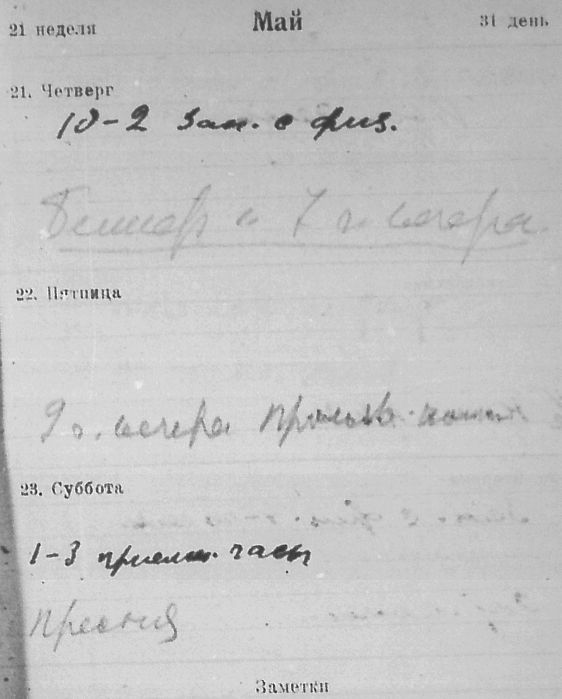 21 неделя
Май
31 день
21. Четверг
10-2 зан. с физ.
7 ч. вечера
22. Пятница
9 ч. вечера
23. Суббота
1-3 приемн. часы
Пресня
Заметки